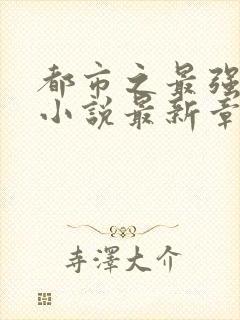 都市之最强
小説最新章
寺澤大介